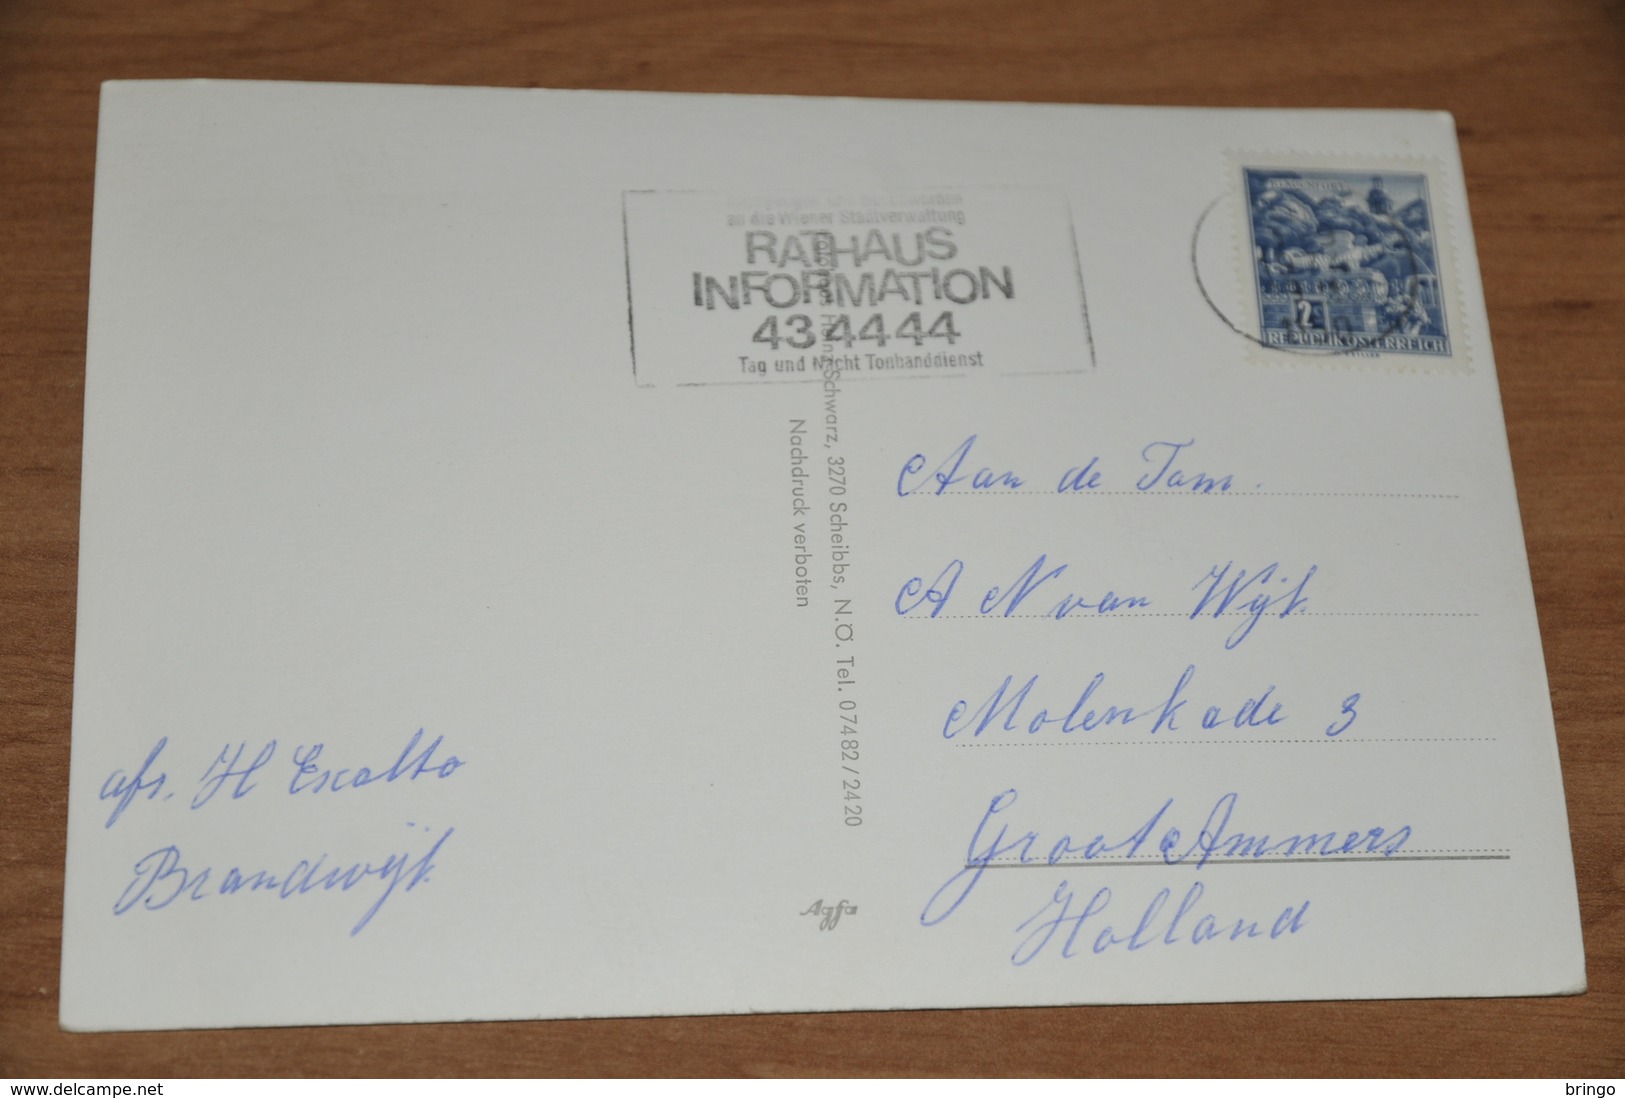 an die Wiener Stadtverwaltung
RATHAUS
INFORMATION
43 44 44
Tag und Nacht Tonbanddienst
KLAGENFURT
2
REPUBLIK ÖSTERREICH
Schwarz, 3270 Scheibbs, N.Ö. Tel. 07482/2420
Nachdruck verboten
Aan de Fam.
A N van Wijk
Molenkade 3
Groot Ammers
Holland
afs. H Escalto
Brandwijk
Agfa
www.delcampe.net
bringo